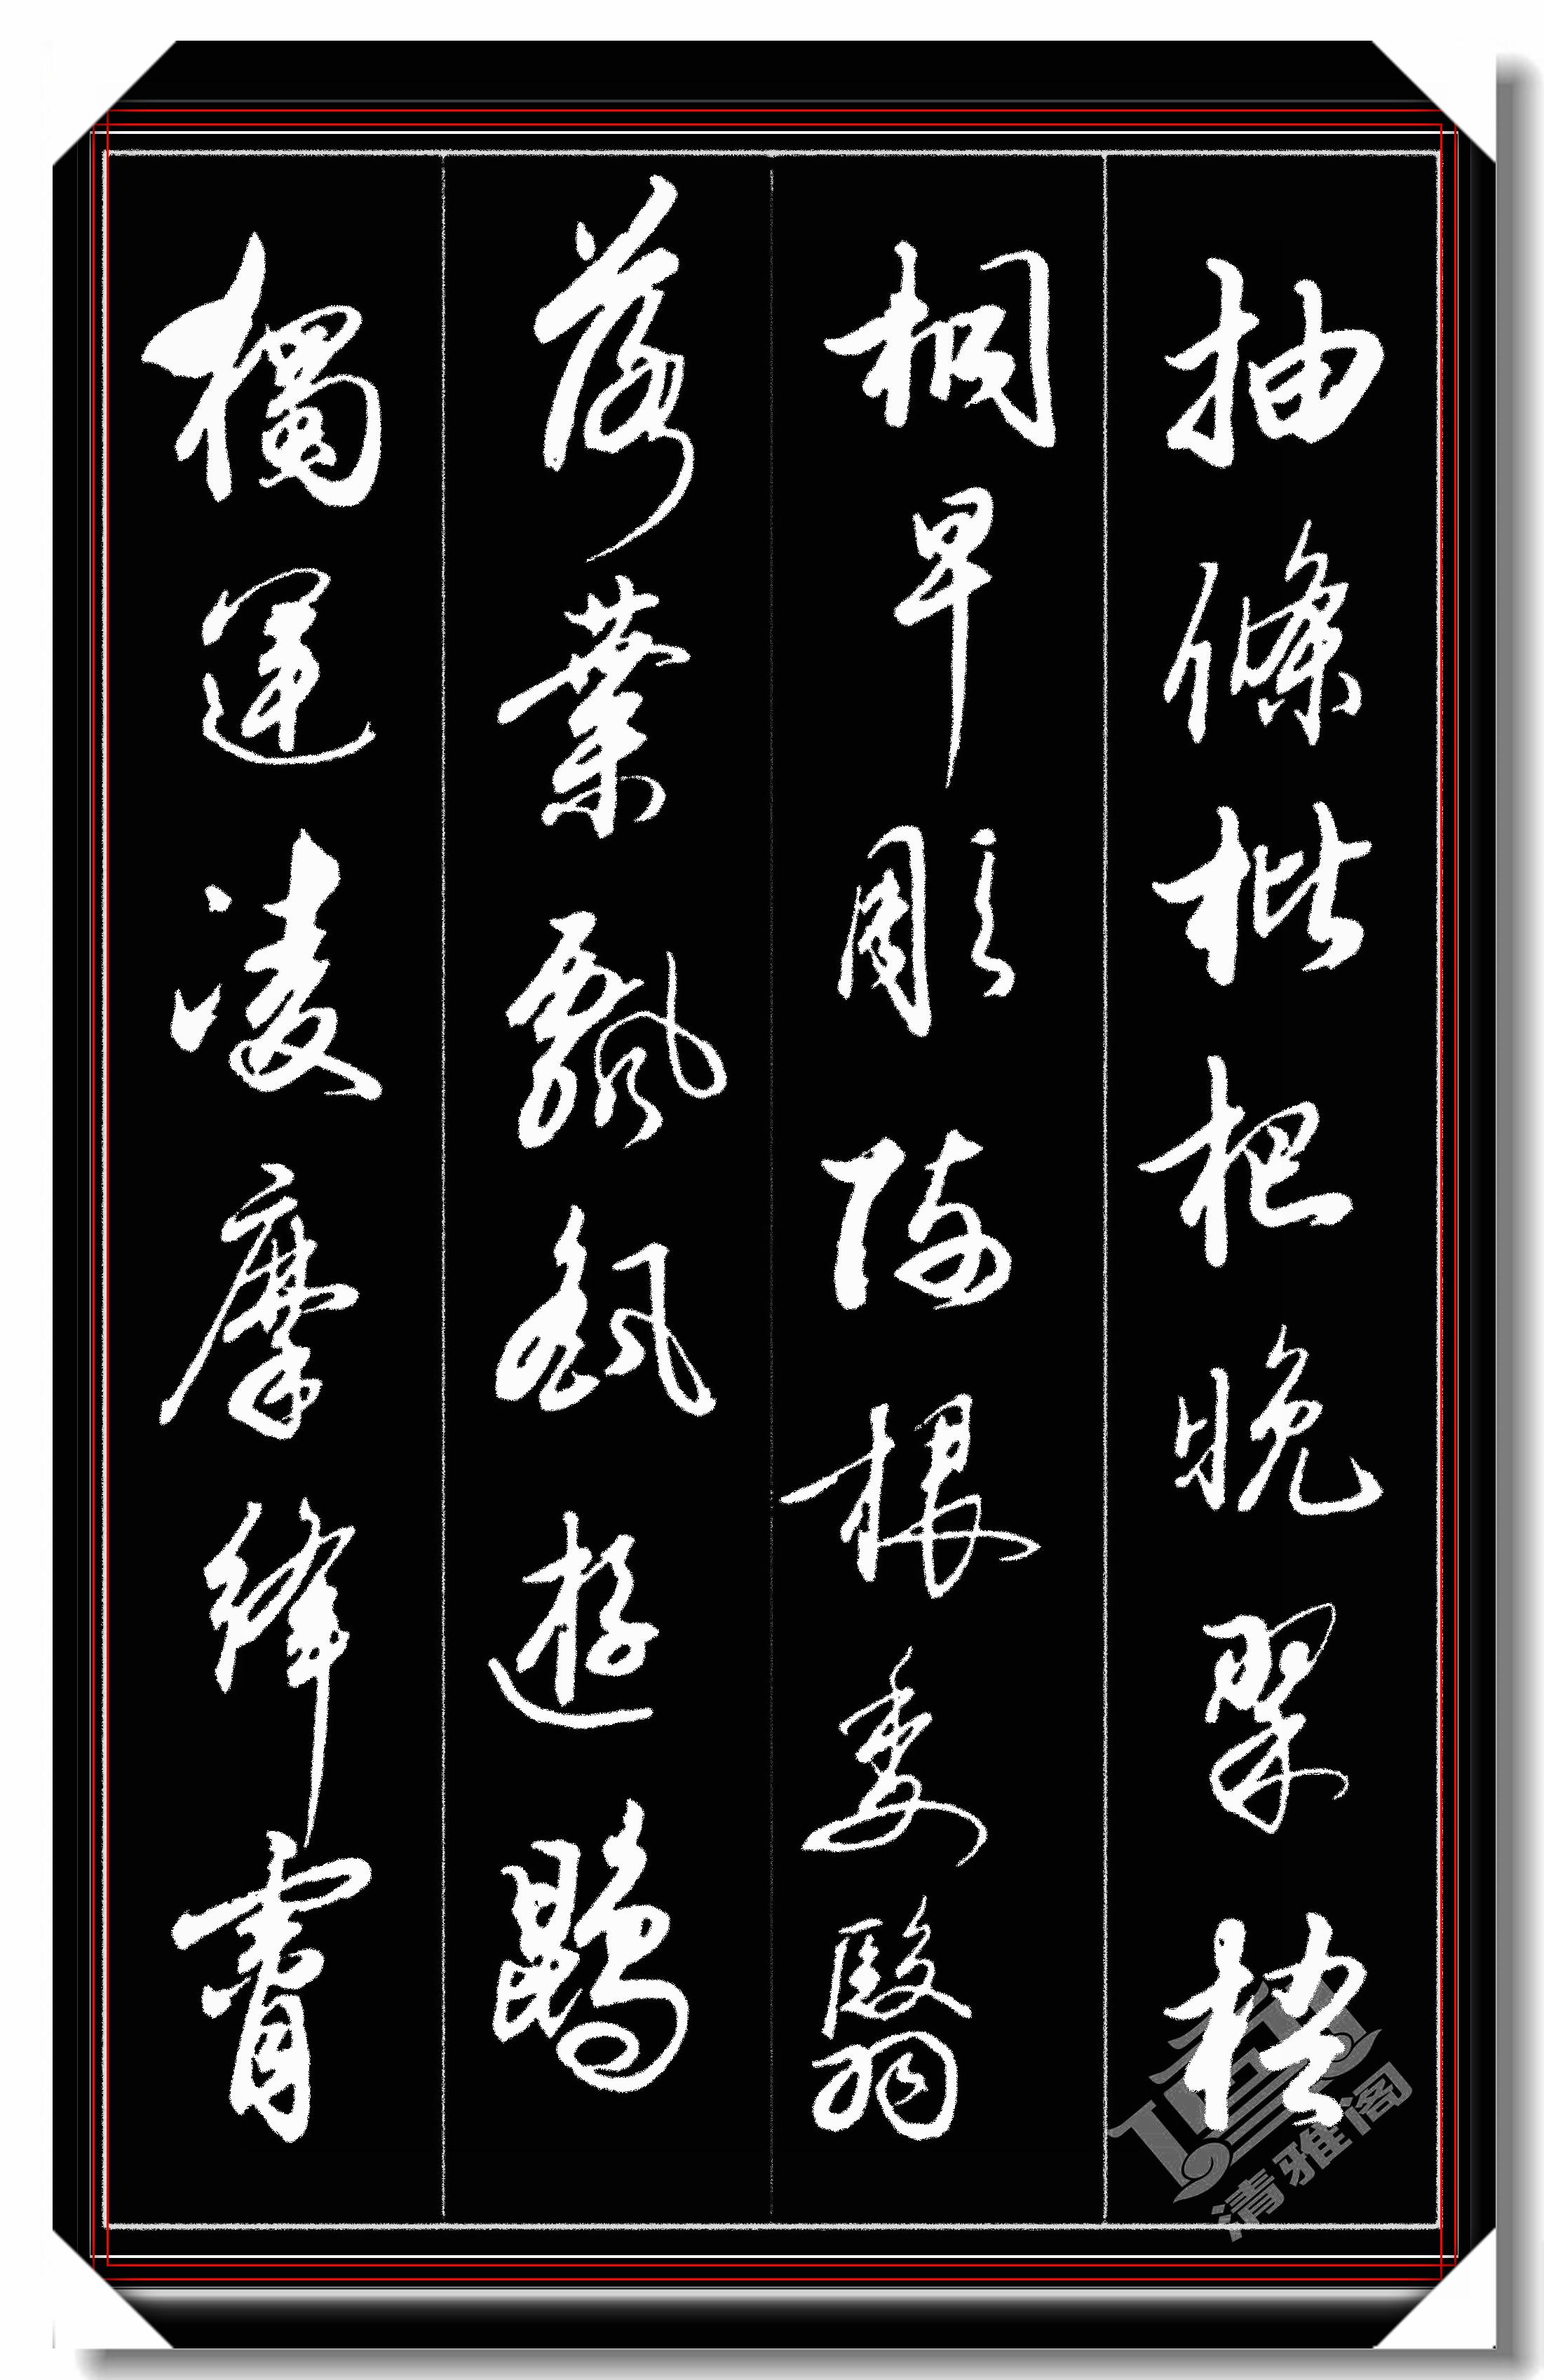 抽條枇杷晚翠梧
桐早彫陳根委翳
落葉飄颻遊鵾
獨運凌摩絳霄
清雅阁